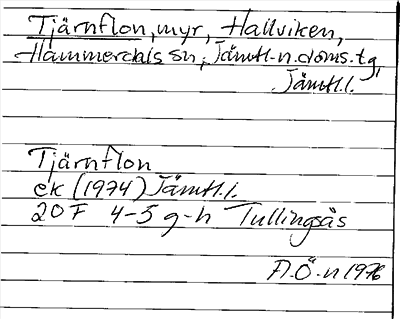 Tjärnflon, myr, Hallviken,
Hammerdals sn, Jämtl.n.doms.tg,
Jämtl.l.
Tjärnflon
ek (1974) Jämtl.l.
20F 4-5 g-h Tullingsås
A.Ö-n 1976